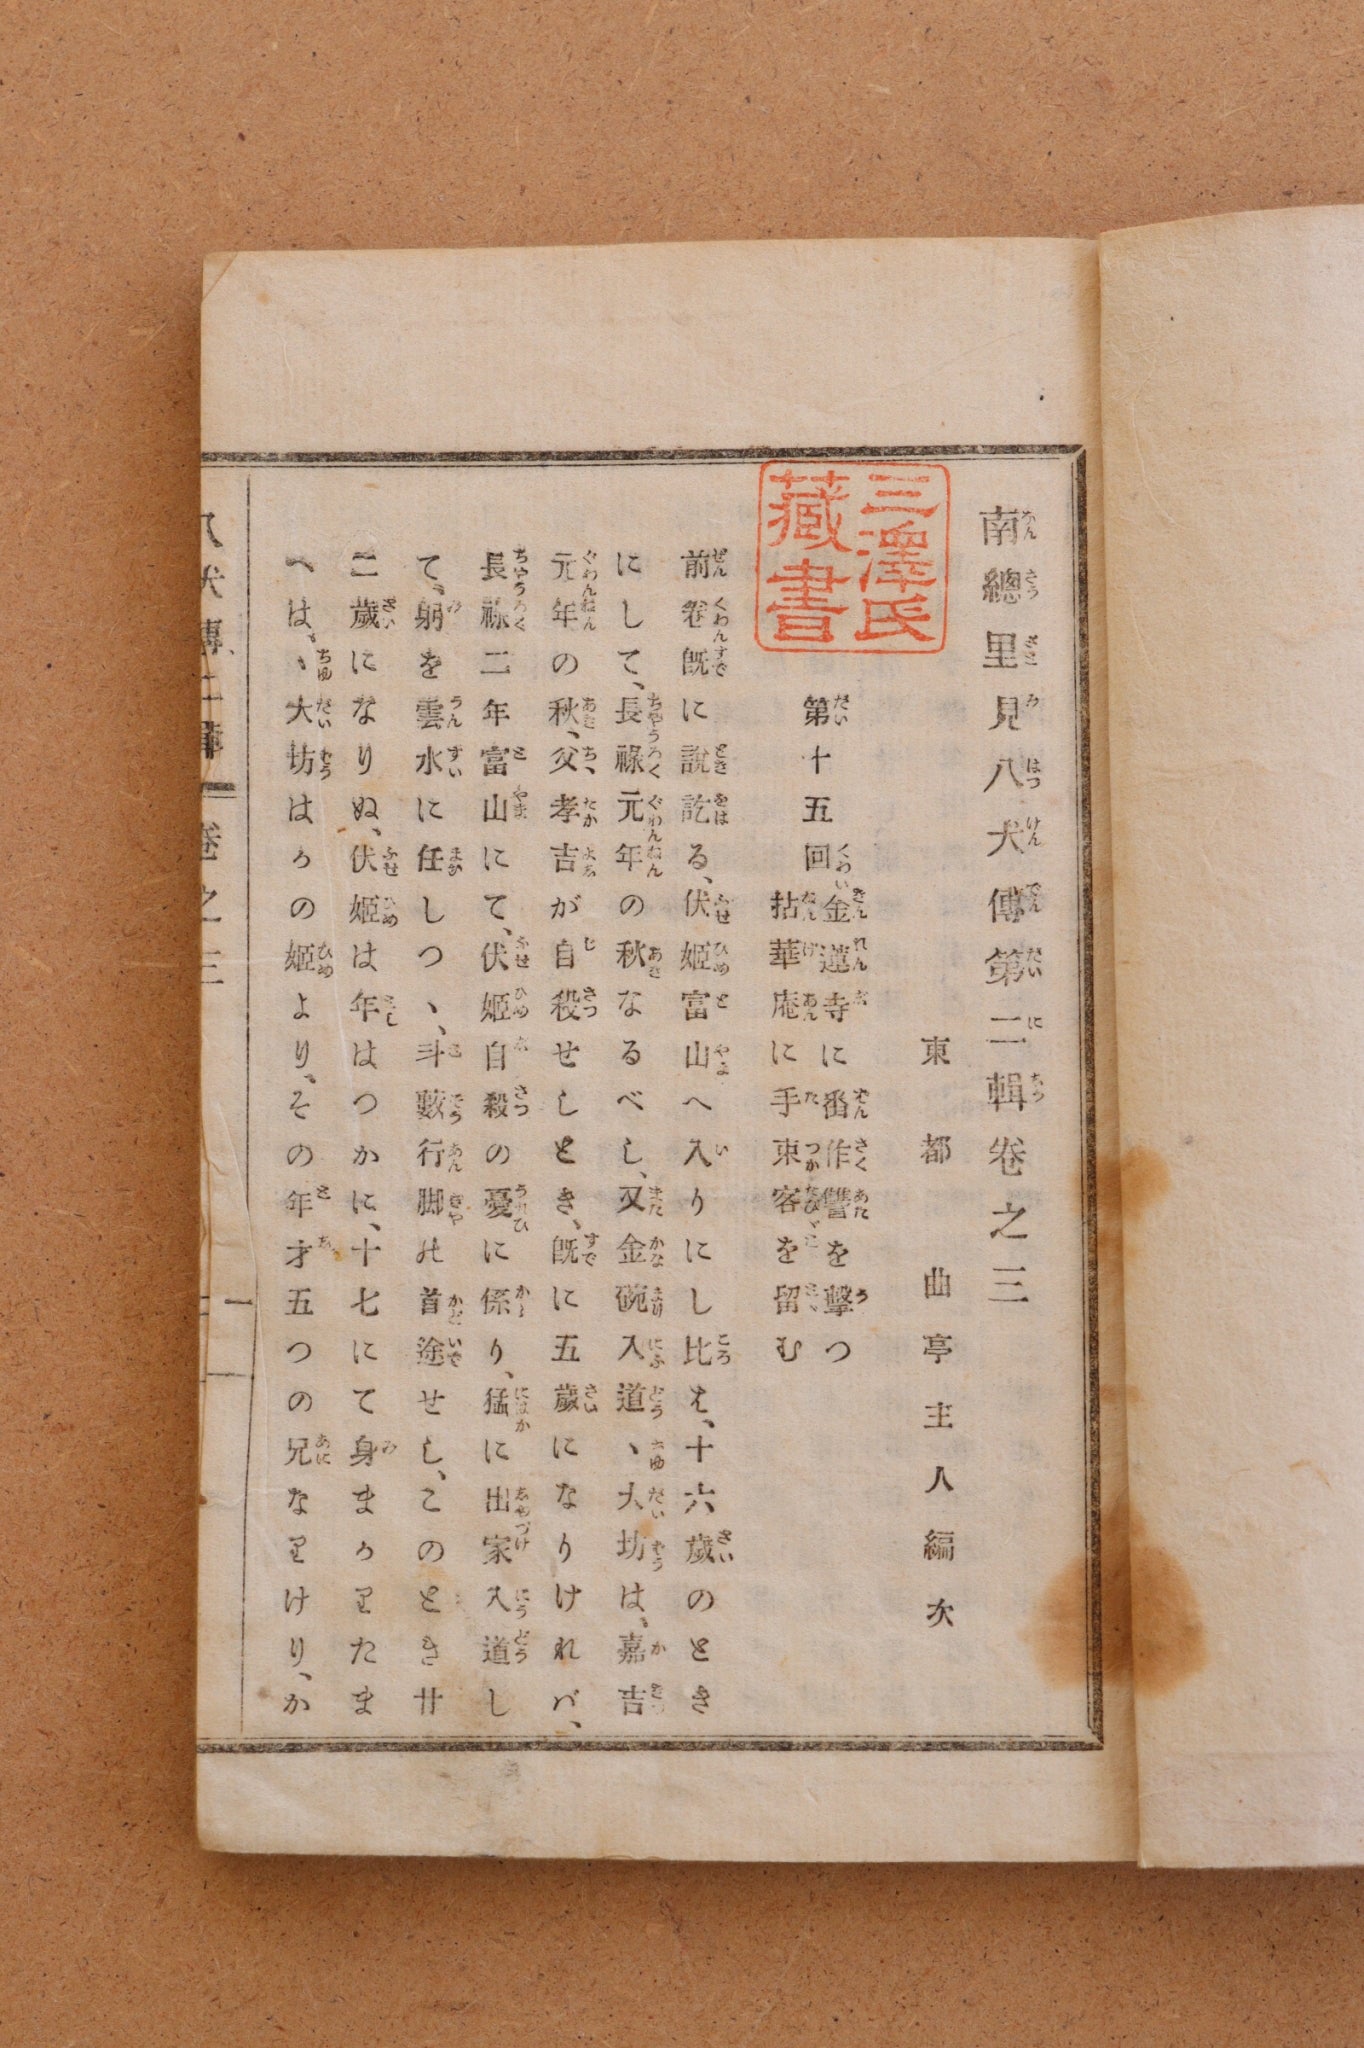 南總里見八犬傳第二輯卷之三
東都 曲亭主人編次
三澤氏
藏書
第十五回
金蓮寺に番作讐を撃つ
拈華庵に手束客を留む
前卷既に說訖る、伏姬富山へ入りにし比は、十六歲のとき
にして、長祿元年の秋なるべし、又金碗入道、大坊は、嘉吉
元年の秋、父孝吉が自殺せしとき、既に五歲になりければ、
長祿二年富山にて、伏姬自殺の憂に係り、猛に出家入道し
て、躬を雲水に任しつ、、斗藪行脚の首途せし、このとき廿
二歲になりぬ、伏姬は年はつかに、十七にて身まかりたま
へは、、大坊はかの姬より、その年才五つの兄なりけり、か
八犬傳二輯 卷之三 一